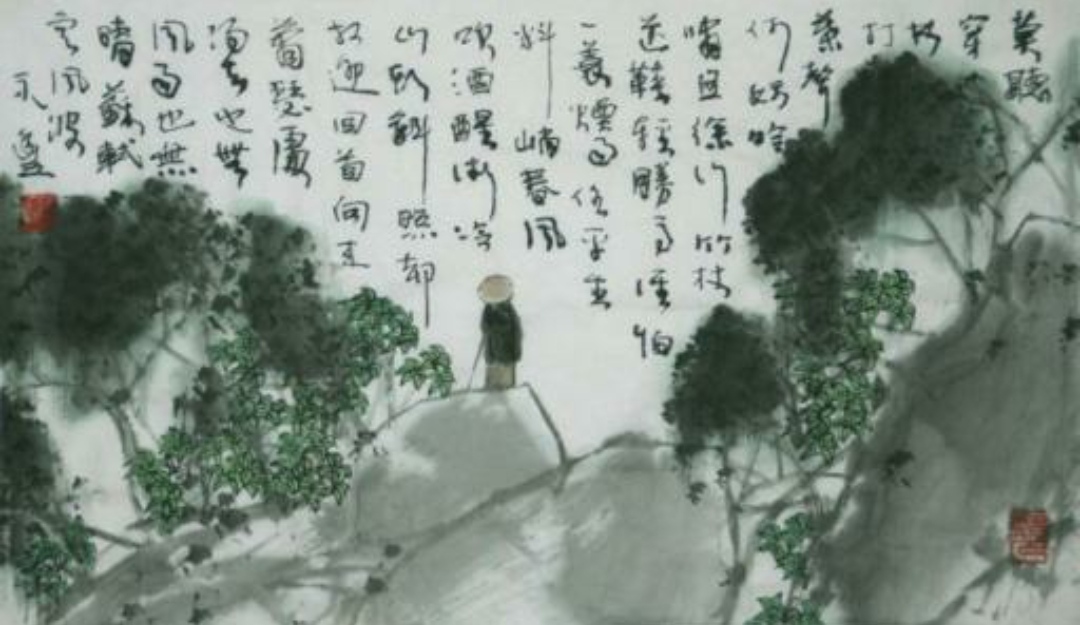 莫聽
穿
林
打
葉聲
何妨吟
嘯且徐行竹杖
芒鞋輕勝馬誰怕
一蓑煙雨任平生
料峭春風
吹酒醒微冷
山頭斜照卻
相迎回首向來
蕭瑟處
歸去也無
風雨也無
晴蘇軾
定風波